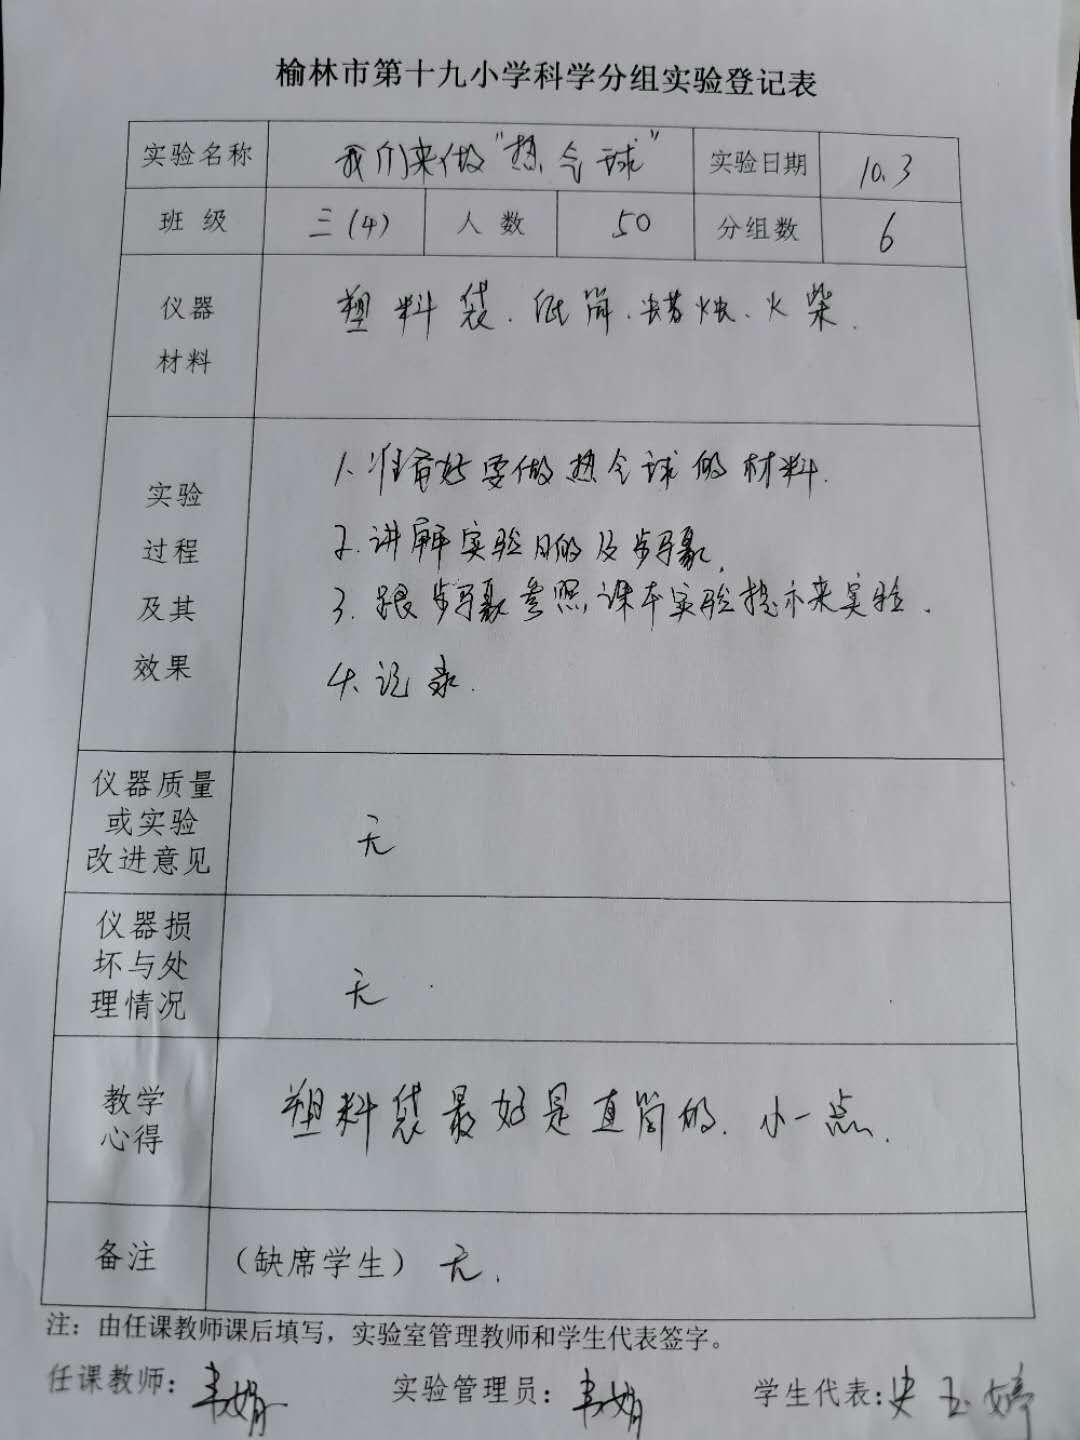 榆林市第十九小学科学分组实验登记表
实验名称 我们来做“热气球” 实验日期 10.3
班级 三(4) 人数 50 分组数 6
仪器
材料
塑料袋、纸筒、蜡烛、火柴.
实验
过程
及其
效果
1、准备好要做热气球的材料.
2.讲解实验目的及步骤.
3.跟步骤参照课本实验提示来实验.
4、记录.
仪器质量
或实验
改进意见
无
仪器损
坏与处
理情况
无
教学
心得
塑料袋最好是直筒的、小一点.
备注 (缺席学生) 无.
注：由任课教师课后填写，实验室管理教师和学生代表签字。
任课教师：韦娟 实验管理员：韦娟 学生代表:史玉婷